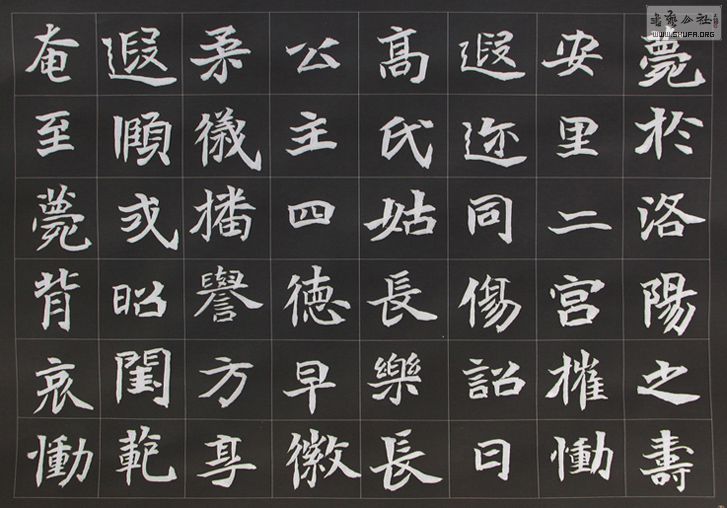 薨於洛陽之壽
安里二宮摧慟
遐迩同傷詔曰
高氏姑長樂長
公主四德早徽
柔儀播譽方享
遐頤式昭閨範
奄至薨背哀慟
書藝公社
WWW.SHUFA.ORG